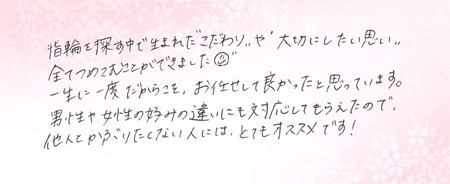 指輪を探す中で生まれた"こだわり"や"大切にしたい思い"
全てつめこむことができました☺"
一生に一度だからこそ、お任せして良かったと思っています。
男性や女性の好みの違いにも対応してもらえたので、
他人とかぶりたくない人には、とてもオススメです!